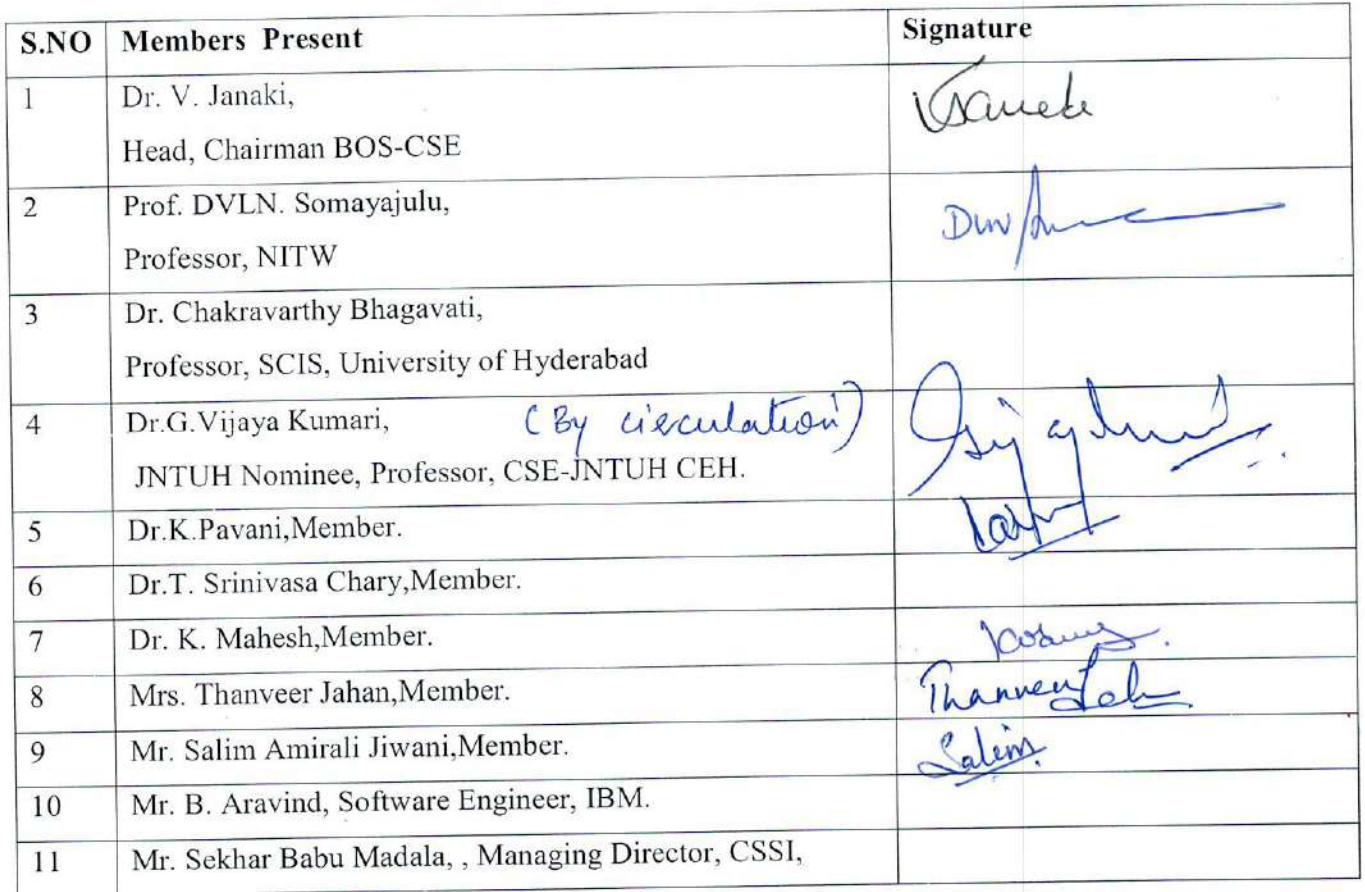 S.NO Members Present Signature
1 Dr. V. Janaki,
Head, Chairman BOS-CSE
2 Prof. DVLN. Somayajulu,
Professor, NITW
3 Dr. Chakravarthy Bhagavati,
Professor, SCIS, University of Hyderabad
4 Dr.G.Vijaya Kumari, (By circulation)
JNTUH Nominee, Professor, CSE-JNTUH CEH.
5 Dr.K.Pavani,Member.
6 Dr.T. Srinivasa Chary,Member.
7 Dr. K. Mahesh,Member.
8 Mrs. Thanveer Jahan,Member. Thanveer
9 Mr. Salim Amirali Jiwani,Member. Salim
10 Mr. B. Aravind, Software Engineer, IBM.
11 Mr. Sekhar Babu Madala, , Managing Director, CSSI,